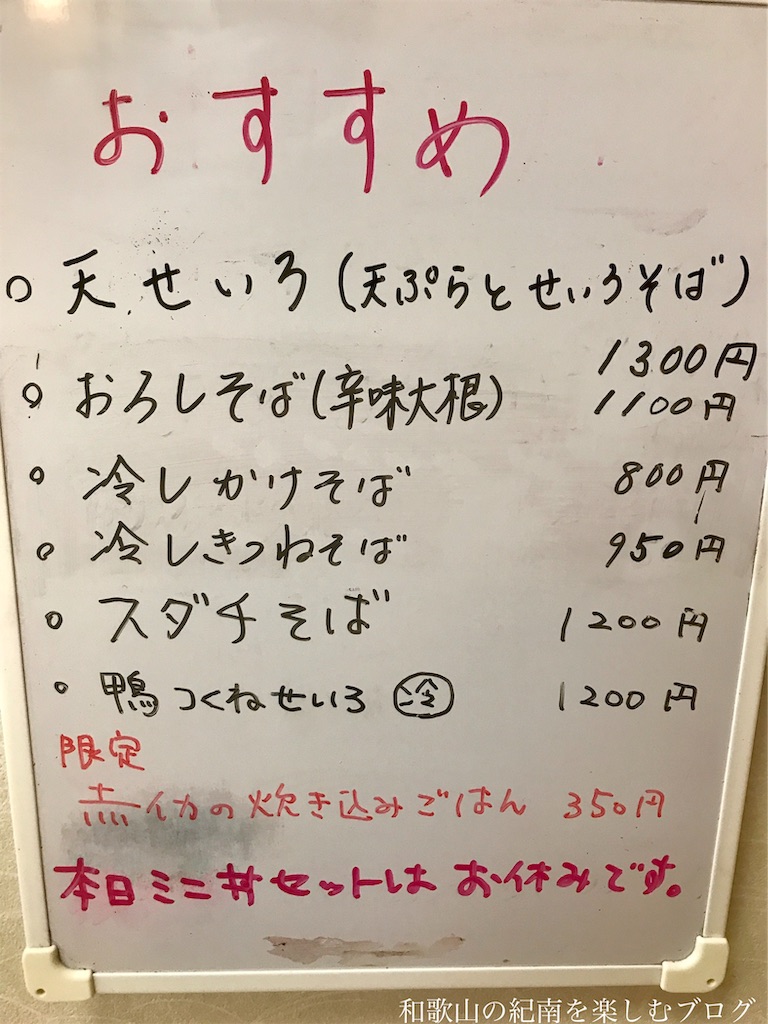 おすすめ
○ 天せいろ(天ぷらとせいろそば)
1300円
○ おろしそば(辛味大根) 1100円
○ 冷しかけそば 800円
○ 冷しきつねそば 950円
○ スダチそば 1200円
○ 鴨つくねせいろ ㊗冷 1200円
限定
赤イカの炊き込みごはん 350円
本日ミニ丼セットはお休みです。
和歌山の紀南を楽しむブログ